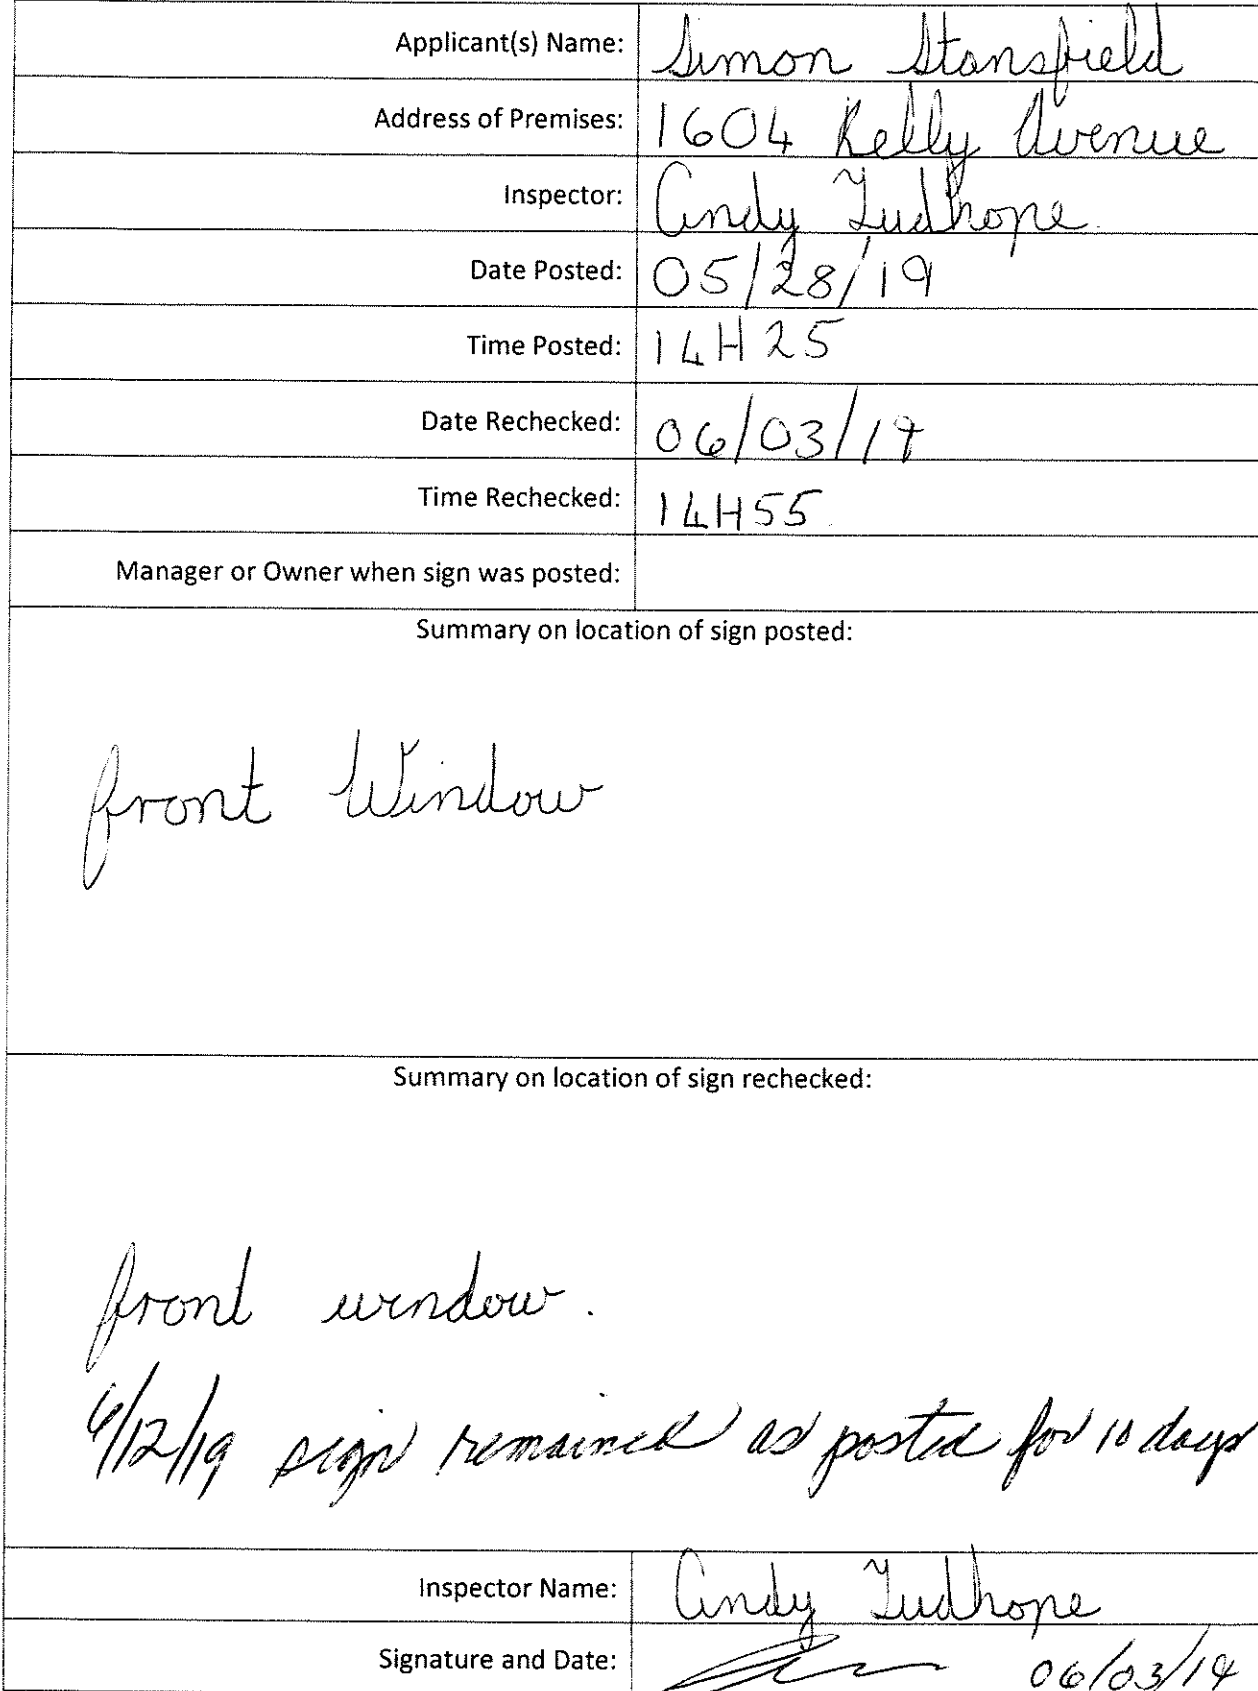 Applicant(s) Name: Simon Stansfield
Address of Premises: 1604 Kelly Avenue
Inspector: Andy Tudhope.
Date Posted: 05/28/19
Time Posted: 14H25
Date Rechecked: 06/03/19
Time Rechecked: 14H55
Manager or Owner when sign was posted:
Summary on location of sign posted:
front Window
Summary on location of sign rechecked:
front window.
6/12/19 sign remained as posted for 10 days
Inspector Name: Andy Tudhope
Signature and Date: 06/03/19